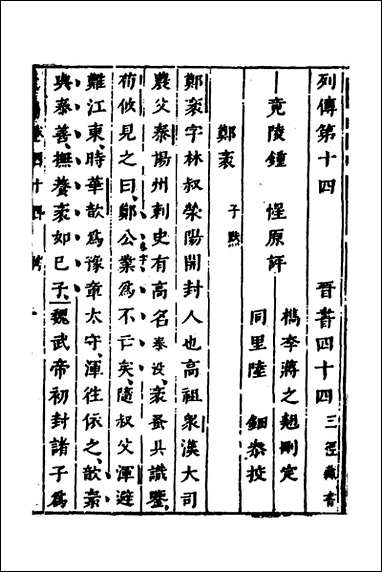 列傳第十四 晉書四十四 三徑藏書
竟陵鍾惺原評 檇李蔣之翹刪定
同里陸鈿恭挍
鄭袤 子默
鄭袤字林叔滎陽開封人也高祖衆漢大司
農父泰揚州刺史有高名泰没袤蚤具識鑒
荀攸見之曰鄭公業爲不亡矣隨叔父渾避
難江東時華歆爲豫章太守渾往依之歆素
與泰善撫養袤如己子魏武帝初封諸子爲